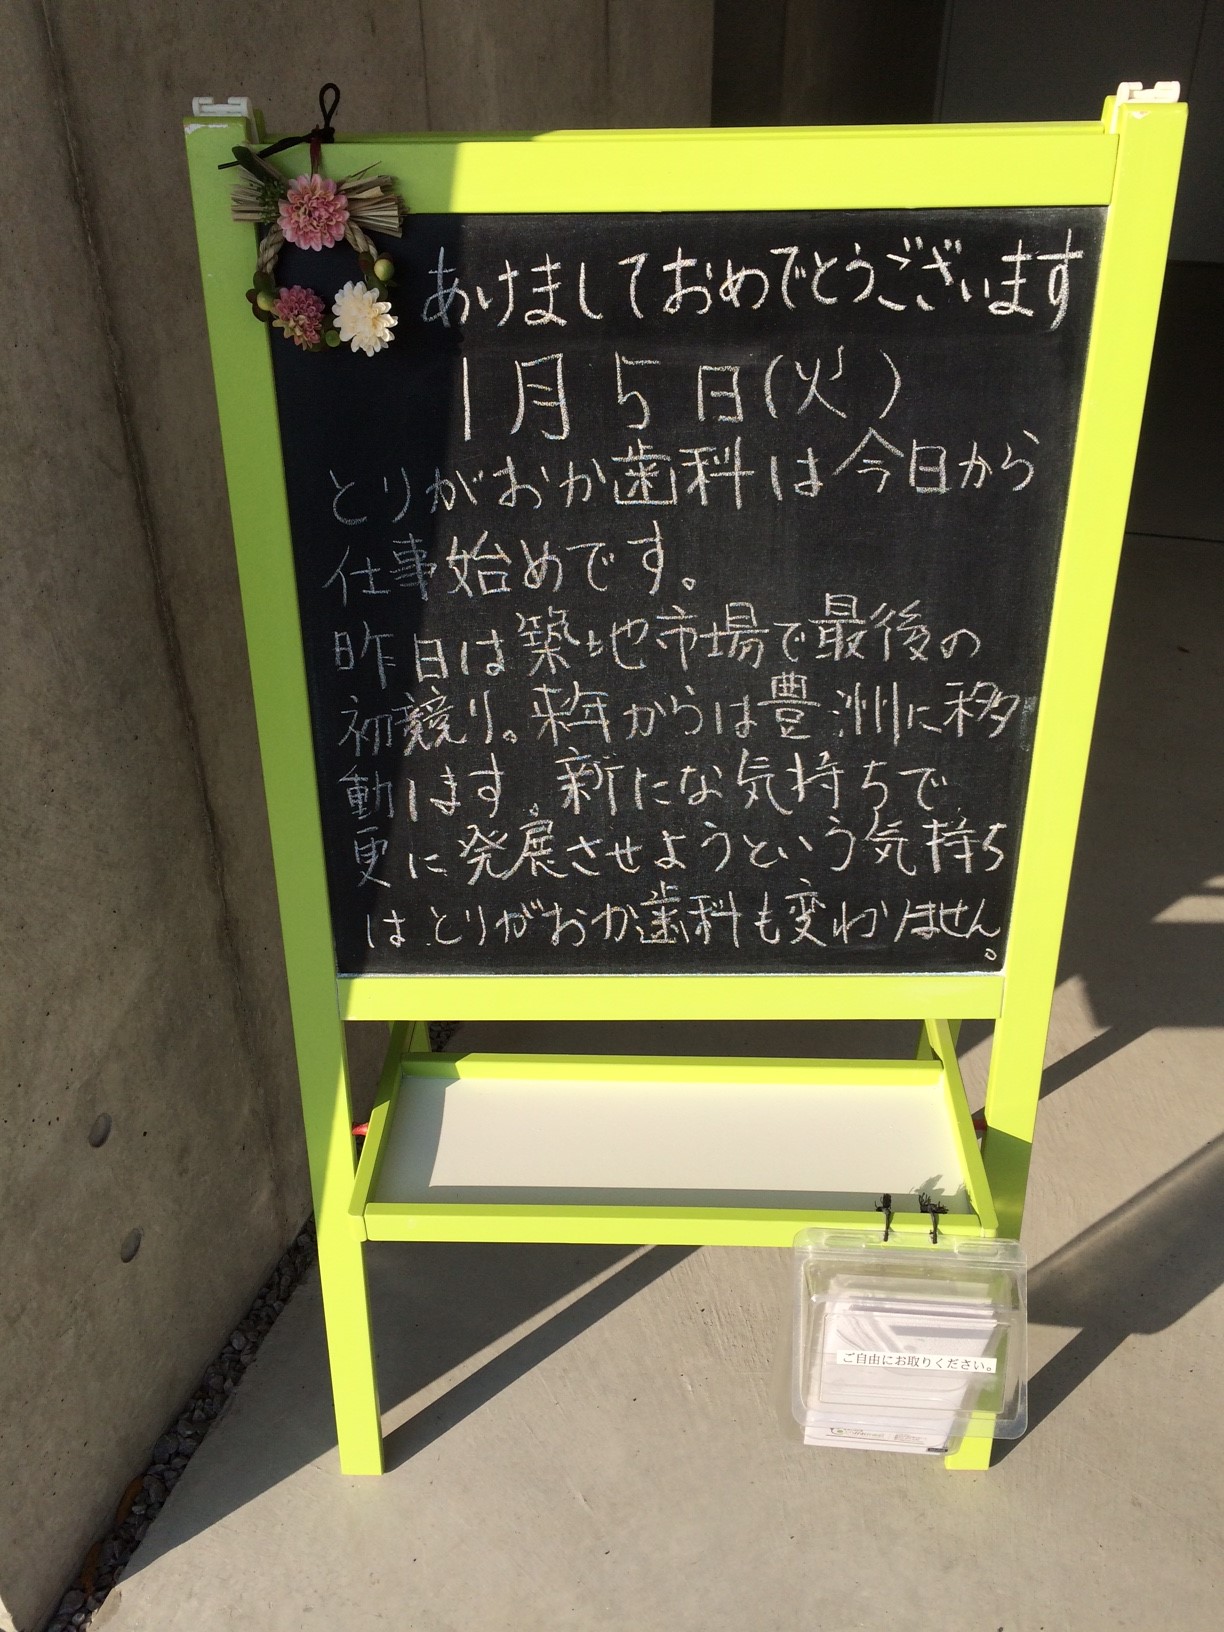 あけましておめでとうございます
1月5日(火)
とりがおか歯科は今日から
仕事始めです。
昨日は築地市場で最後の
初競り。来年からは豊洲に移
動します。新たな気持ちで
更に発展させようという気持ち
はとりがおか歯科も変わりません。
ご自由にお取りください。